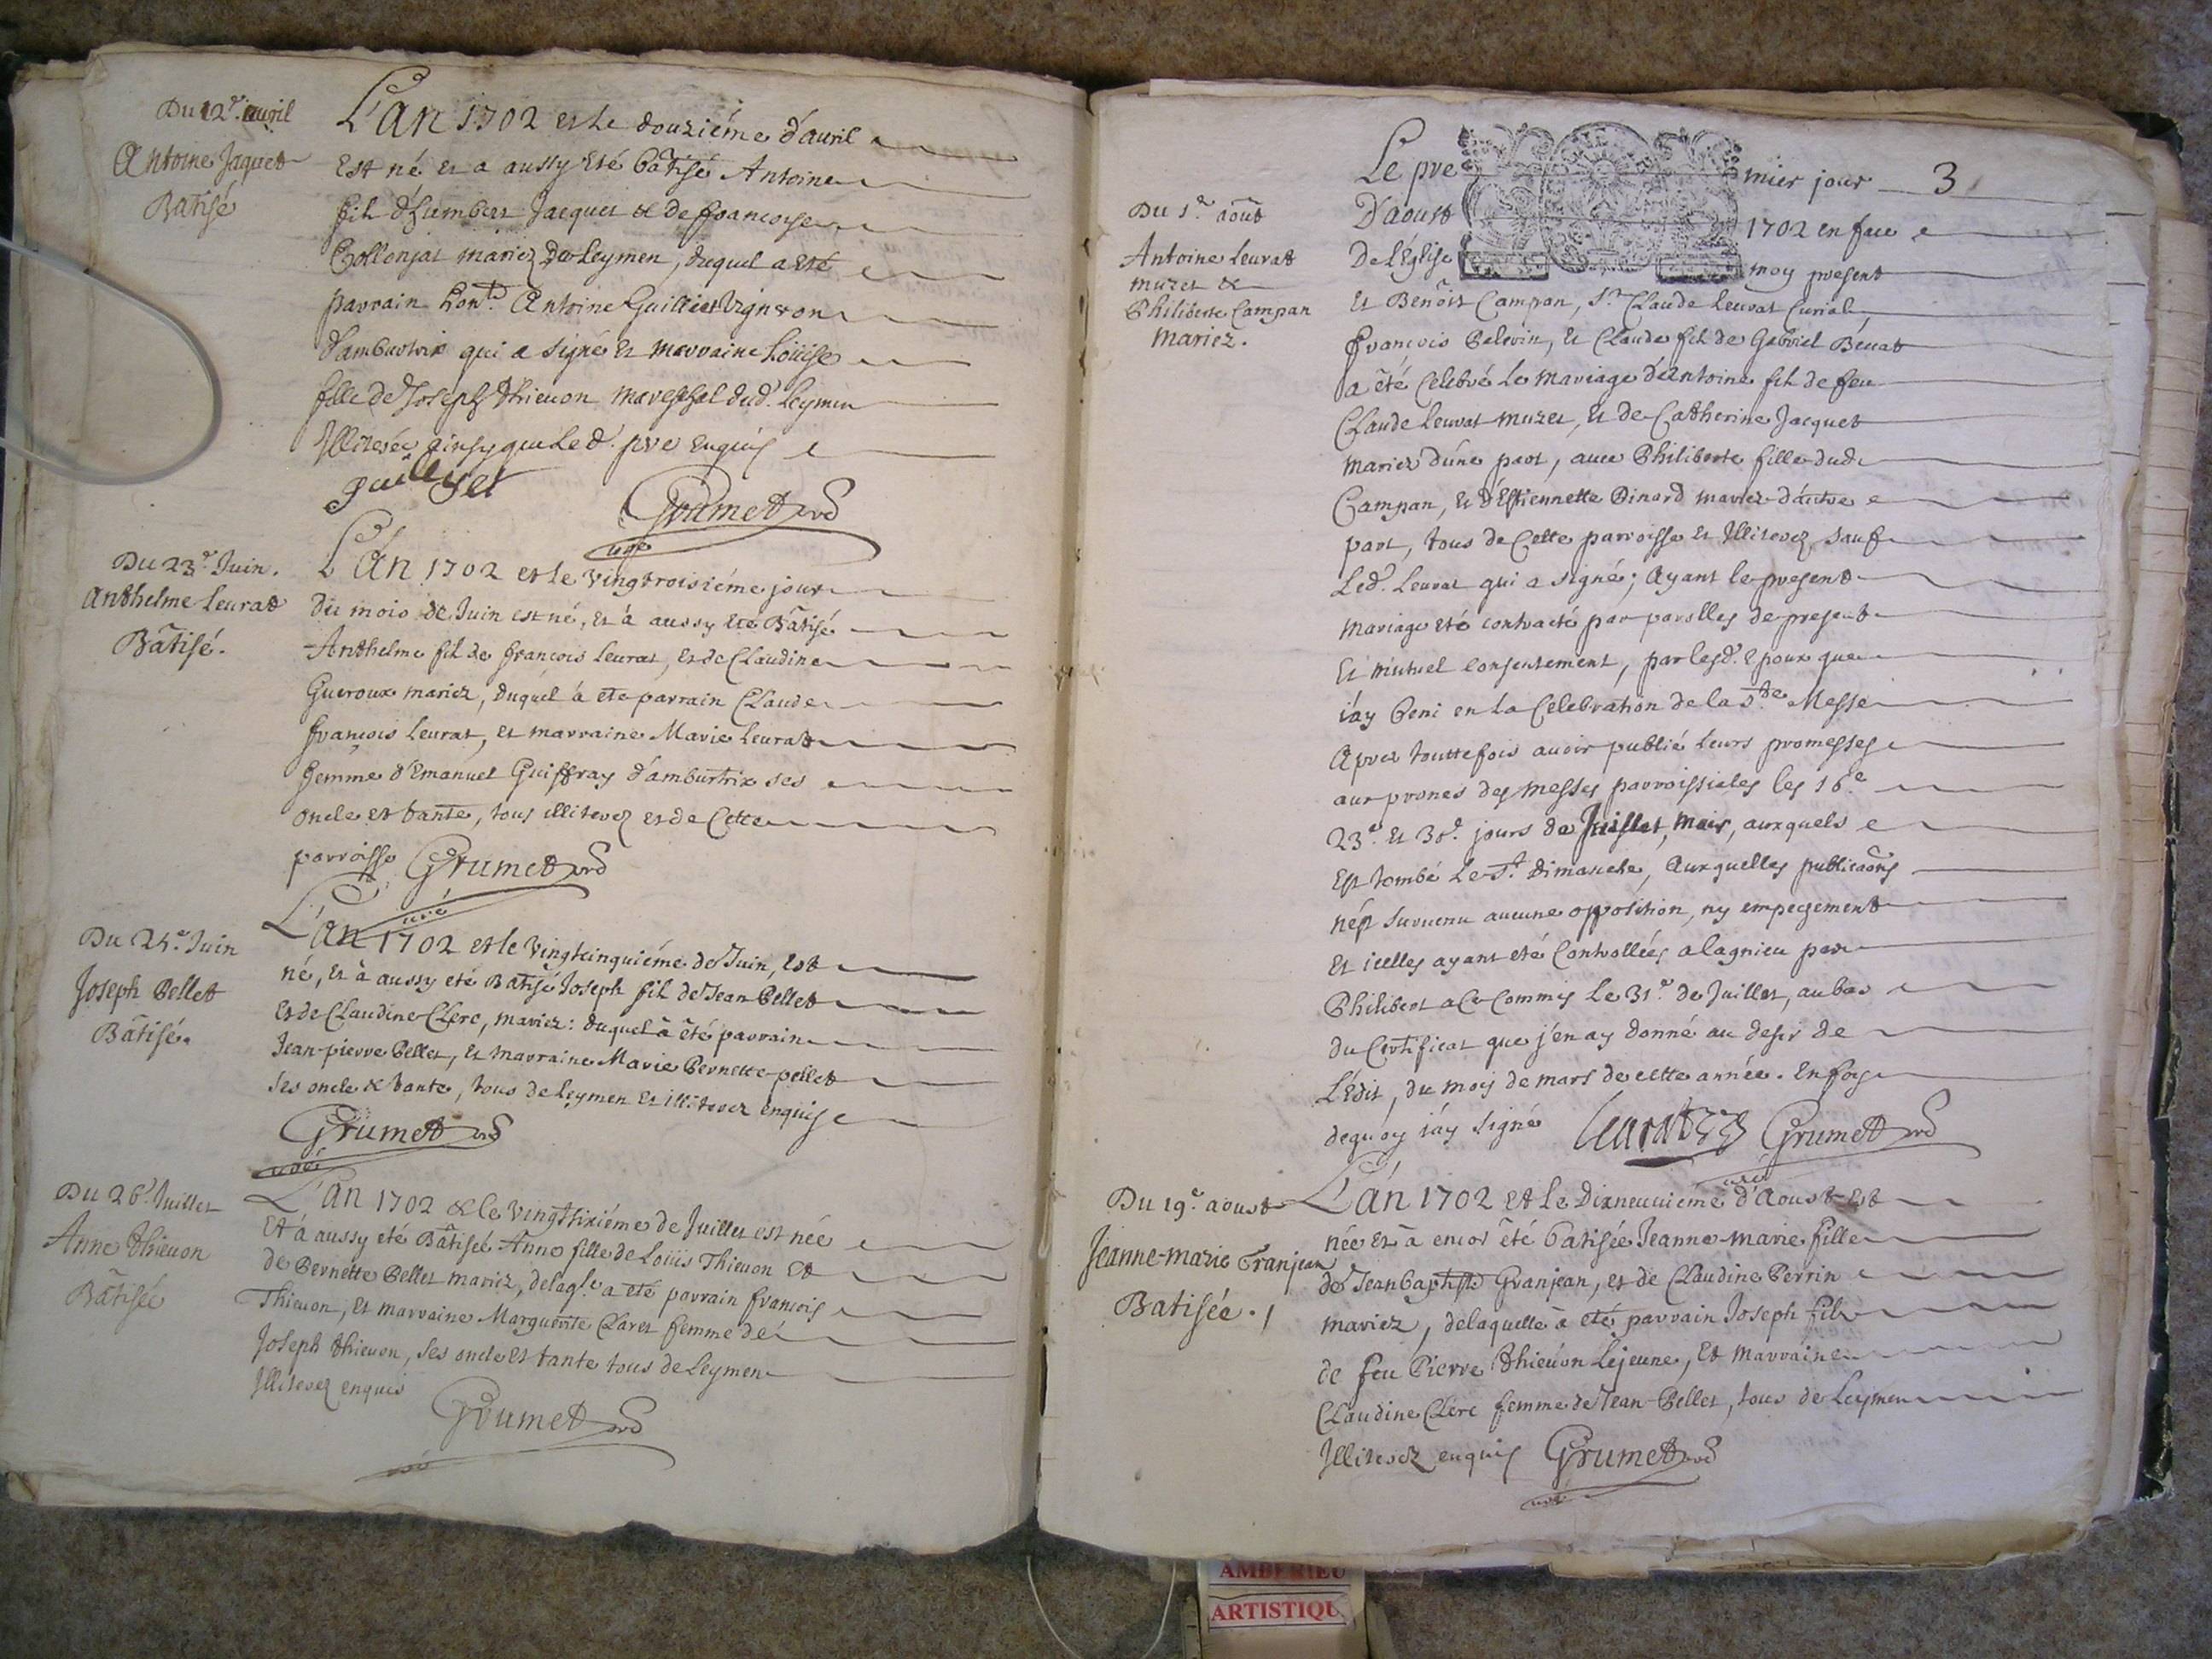 Du 12.e avril
Antoine Jaquet
Batisé
L'an 1702 et le douziéme d'auril
Est né et a aussy eté bâtisé Antoine
fil d'humbert Jacquet & de francoise
Collonjat mariez de Leymen, duquel a eté
parrain hon.ble Antoine Guilliet vigneron
d'ambutrix qui a signé et marraine Loüise
fille de Joseph thieuon mareschal dud. Leymen
Illiterée ainsy que le d. pre enquis
guillyet
Grumet curé
Du 23.e Juin.
Anthelme Leurat
Bâtisé.
L'an 1702 et le vingtroisiéme jour
du mois de Juin est né, et à aussy eté Bâtisé
Anthelme fil de françois Leurat, et de Claudine
Gueroux mariez, duquel à eté parrain Claude
françois Leurat, et marraine Marie Leurat
femme d'Emanuel Guiffray d'amburtrix ses
oncle et tante, tous illiterez et de Cette
parroisse Grumet curé
Du 25.e Juin
Joseph Pellet
Bâtisé.
L'an 1702 et le vingtcinquiéme de Juin, est
né, et à aussy eté Batisé Joseph fil de Jean Pellet
et de Claudine Clerc, mariez: duquel à êté parrain
Jean-pierre Pellet, et marraine Marie Pernette pellet
ses oncle & tante, tous de Leymen et illiterez enquis
Grumet curé
Du 26.e Juillet
Anne thieuon
Bâtisée
L'an 1702 & le vingtsixiéme de Juillet est née
et à aussy eté Bâtisée Anne fille de Loüis Thieuon et
de Pernette Pellet mariez, delaq.le a eté parrain françois
Thieuon, et marraine Marguerite Claret femme de
Joseph thieuon, ses oncle et tante tous de Leymen
Illiterez enquis
Grumet curé
3
Du 1.er août
Antoine Leurat
muzet &
Philiberte Campan
Mariez.
Le premier jour
D'aoust 1702 en face
De L'Eglise moy present
Et Benôit Campan, S.r Claude Leurat Curial,
françois Pelerin, et Claude fil de Gabriel Béuat
a êté Celebré Le mariage d'Antoine fil de feu
Claude Leurat muzet, et de Catherine Jacquet
mariez d'une part, auec Philiberte fille dud.
Campan, et d'Estiennette Dinard mariez d'autre
part, tous de Cette parroisse et Illiterez, sauf
Led. Leurat qui a signé; Ayant le present
Mariage eté contracté par parolles de present
Et mutuel consentement, par lesd. Epoux que
i'ay beni en la Celebration de la s.te Messe
Apres touttefois auoir publié leurs promesses
aux prones des messes parroissiales les 16.e
23.e et 30.e jours de Juillet, mois, auxquels
Est tombé le S.t dimanche, Auxquelles publicaons
n'est suruenu aucune opposition, ny empeschement
Et icelles ayant eté Controllées a lagnieu par
Philibert a Ce Commis Le 31.e de Juillet, au bas
du Certificat que j'en ay donné au desir de
L'Edit, du moys de mars de cette année. En foy
dequoy i'ay signé Leurat Grumet curé
Du 19.e aoust
Jeanne-marie Granjean
Batisée.
L'an 1702 et le Dixneuuiéme d'Aoust est
née et à encor été batisée Jeanne-marie fille
de Jean baptiste Granjean, et de Claudine Perrin
mariez, delaquelle à eté parrain Joseph fil
de feu Pierre thieuon Lejeune, et marraine
Claudine Clerc femme de Jean Pellet, tous de Leymen
Illiterez enquis Grumet curé
AMBERIEU
ARTISTIQU